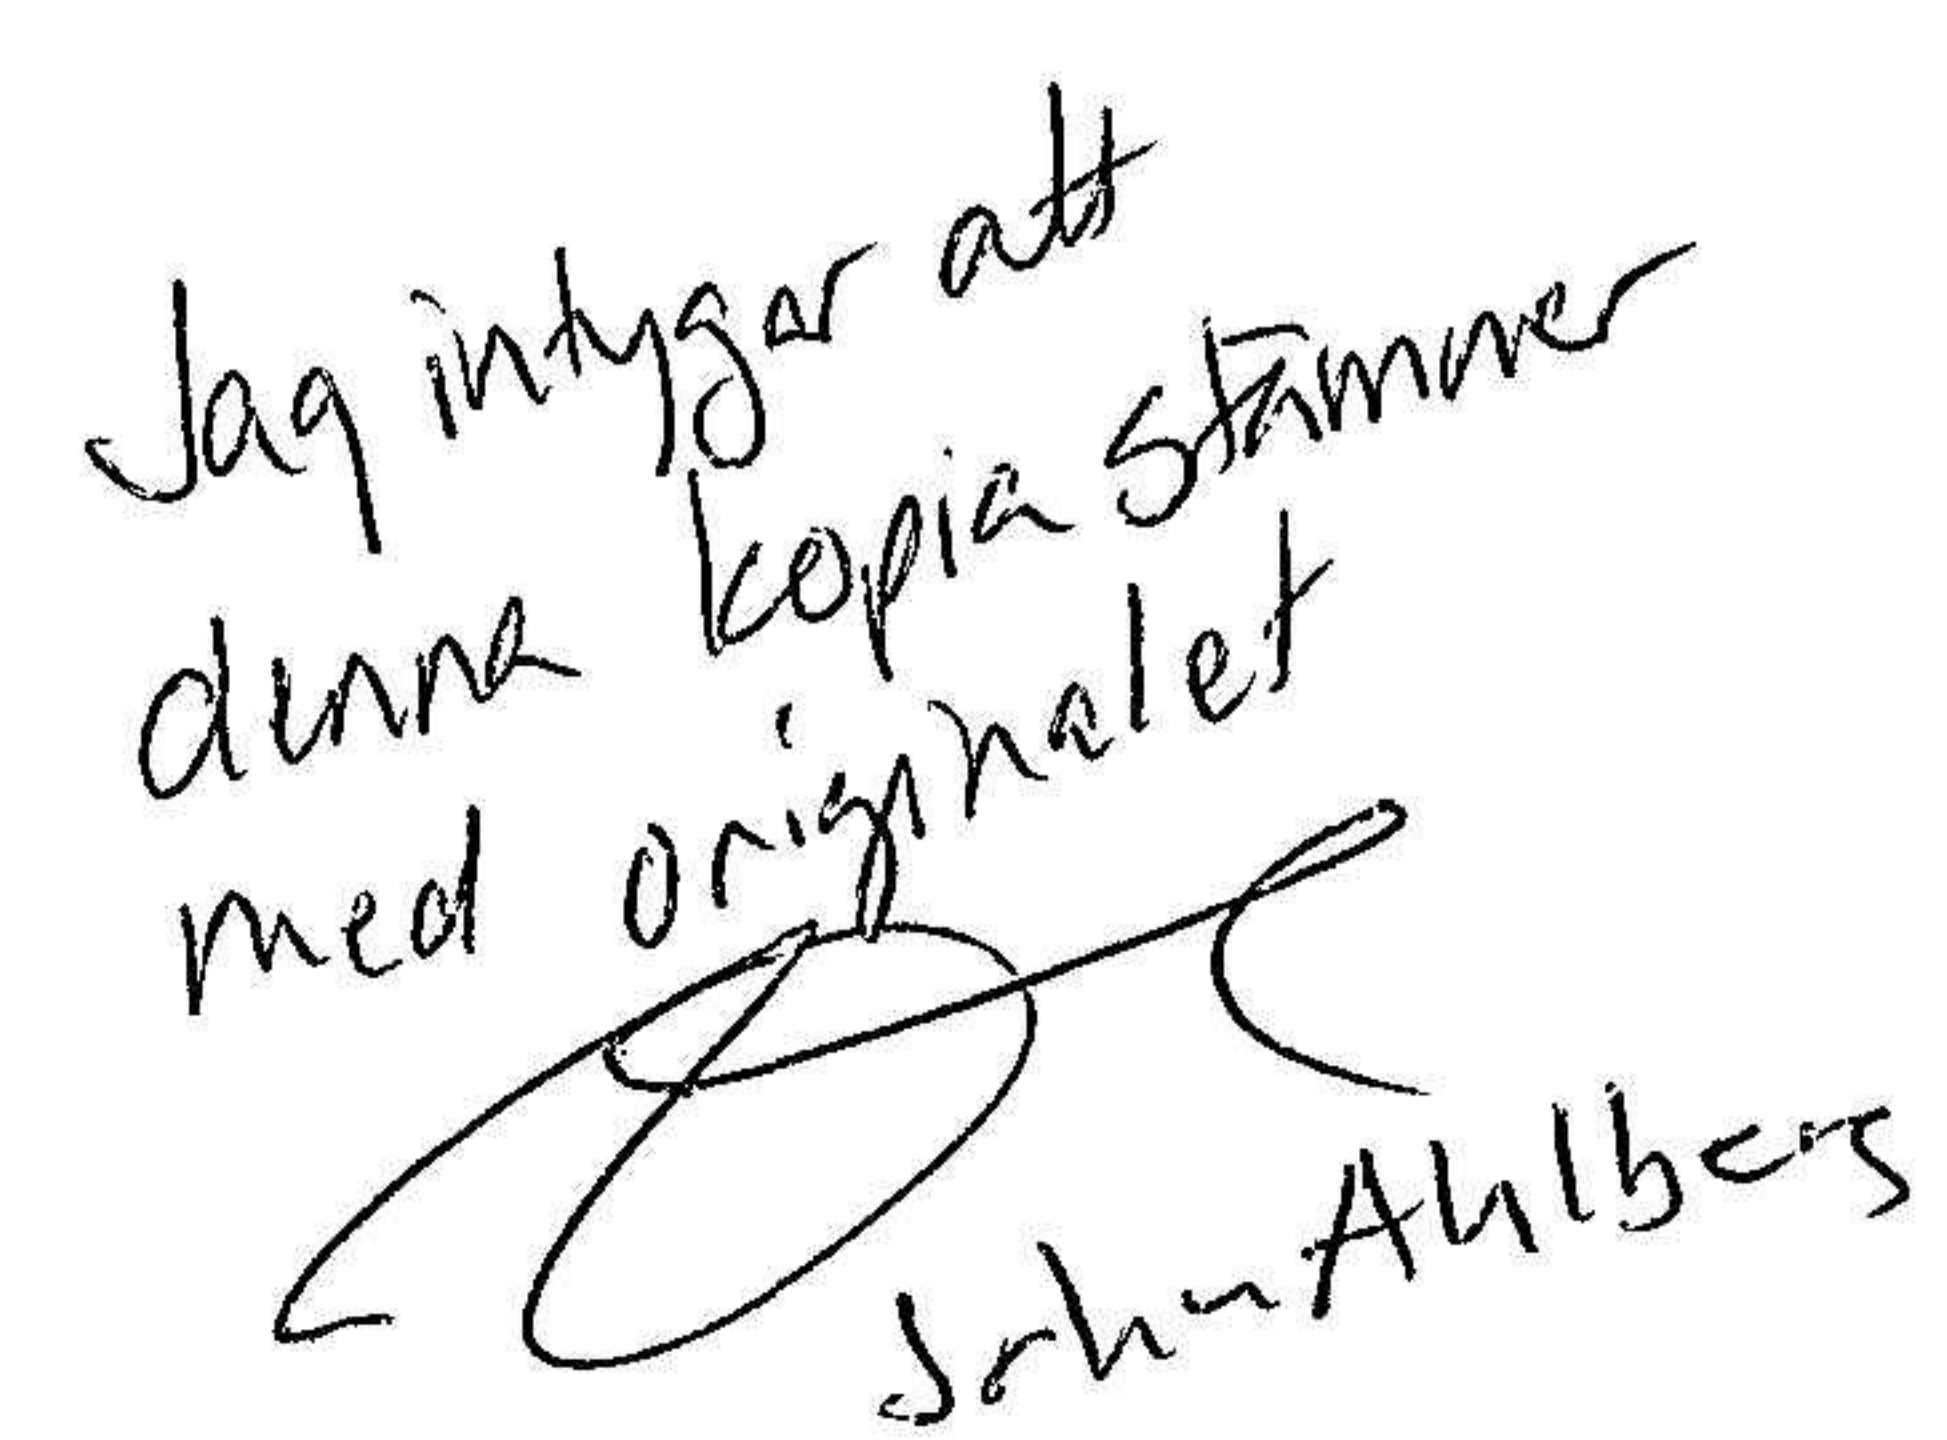 Jag intygar att
denna kopia stämmer
med originalet
John Ahlberg